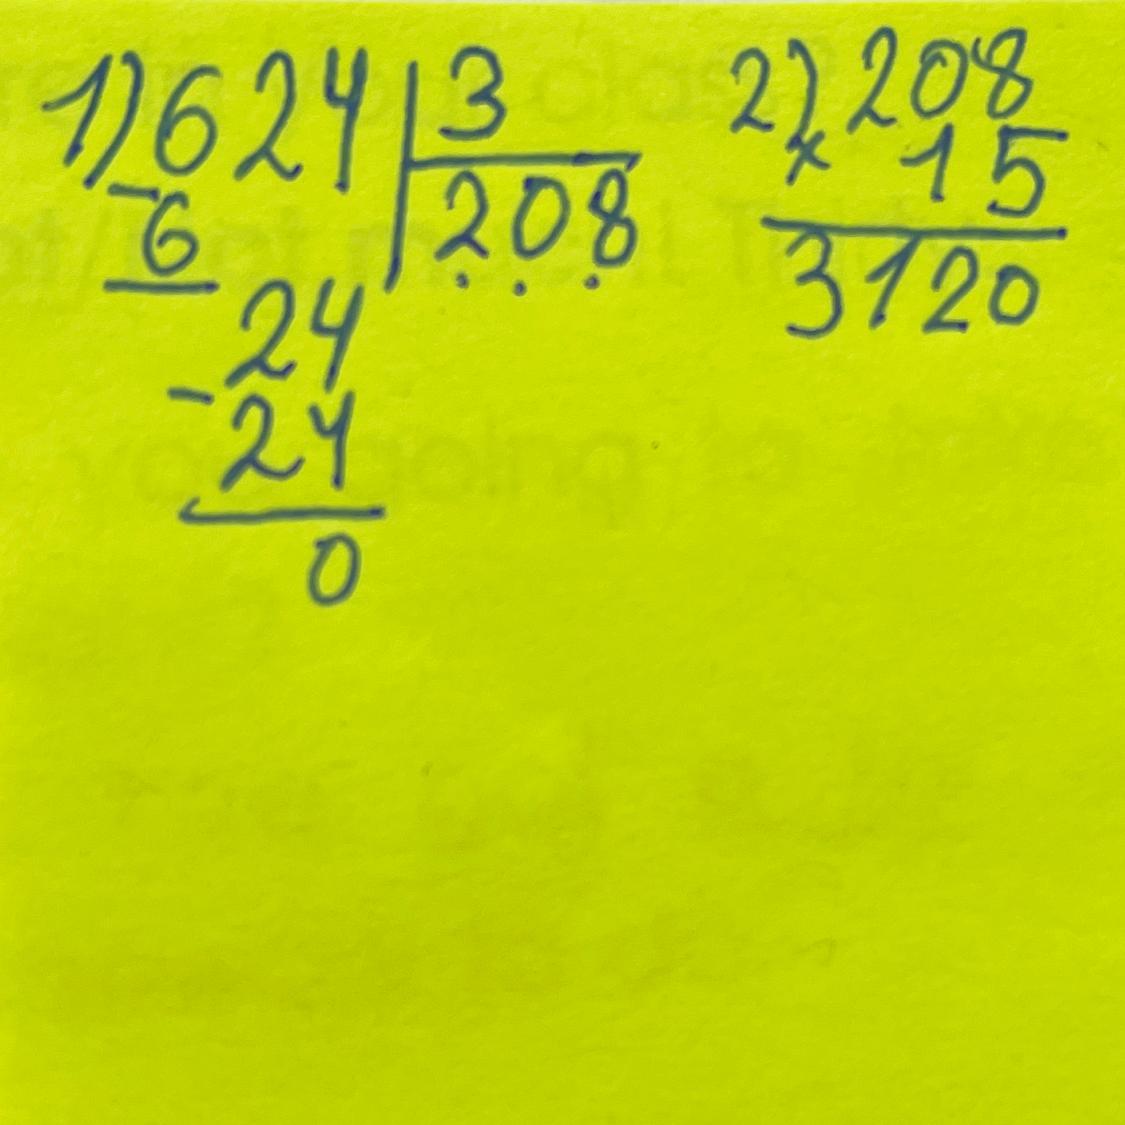 1) 624 | 3
- 6 208
24
- 24
0
2) 208
x 15
3120